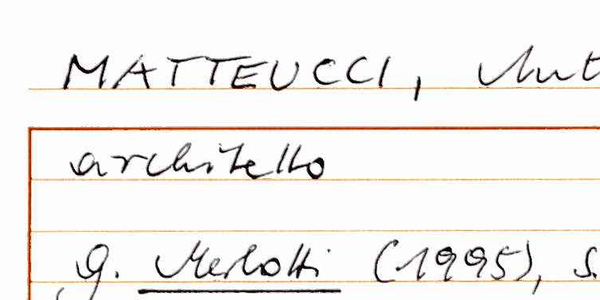 MATTEUCCI, Ant
architetto
G. Merlotti (1995), s.